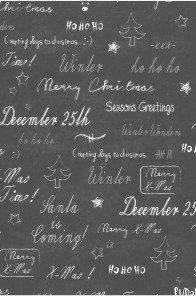 HO HO HO
Christmas
Counting days to christmas... :-)
-xxx-
Time!
Winter
ho ho ho
Merry Christmas
Seasons Greetings
December 25th
Winter Wonders
ho ho ho
Counting days to christmas... :-)
X-Mas
Time!
Winter
Merry
X-Mas
December 25th
Santa
is
Coming!
Merry
X-Mas
X-Mas !
HO HO HO